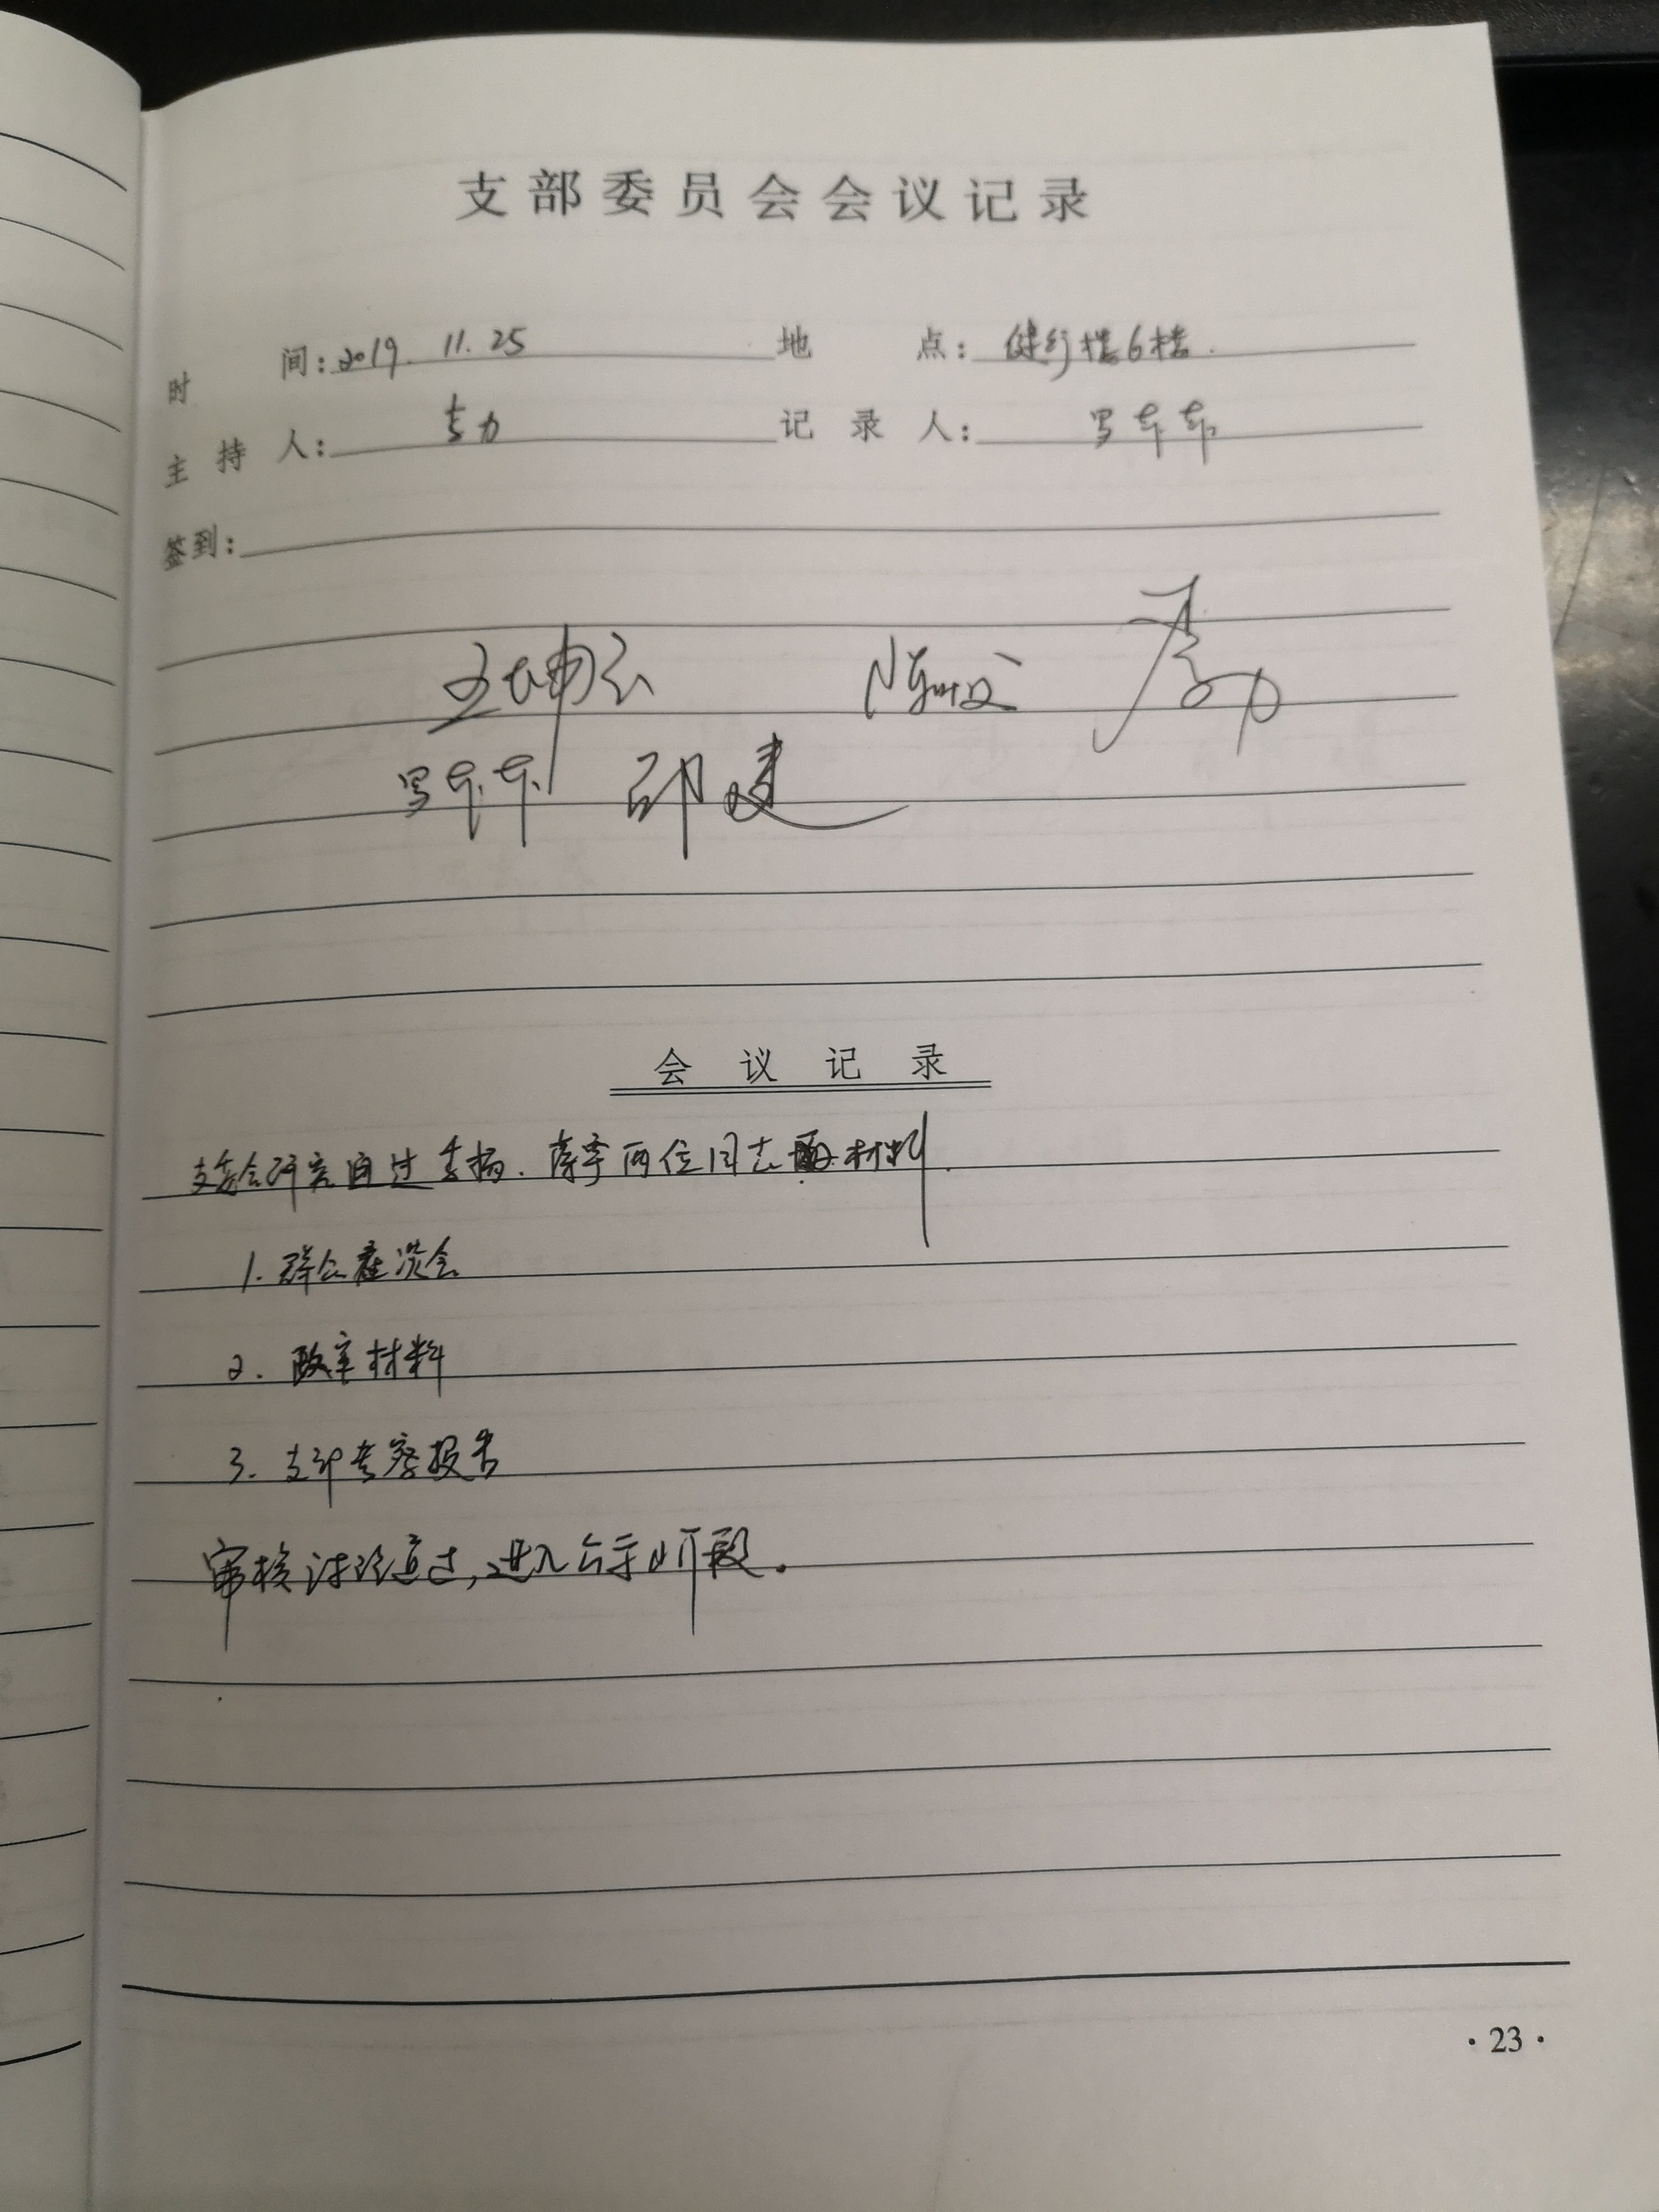 支部委员会会议记录
时间：2019.11.25 地点：健行楼6楼.
主持人： 记录人：
签到：
王坤
邵建
会议记录
支委会研究通过李杨.两位同志材料.
1.群众座谈会
2.政审材料
3.支部考察报告
审核讨论通过,进入公示阶段。
·23·